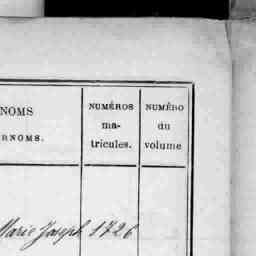 NOMS
RNOMS.
NUMÉROS
ma-
tricules.
NUMÉRO
du
volume
Marie Joseph 1726